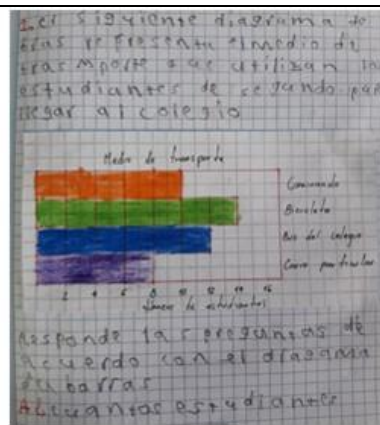 1. el siguiente diagrama de
rras representa el medio de
trasmporte que utilizan los
estudiantes de segundo par
llegar al colegio
Medio de transporte
Caminando
Bicicleta
Bus del colegio
Carro particular
2 4 6 8 10 12 14 16
Número de estudiantes
Responde las preguntas de
acuerdo con el diagrama
de barras
A ¿cuantos estudiantes